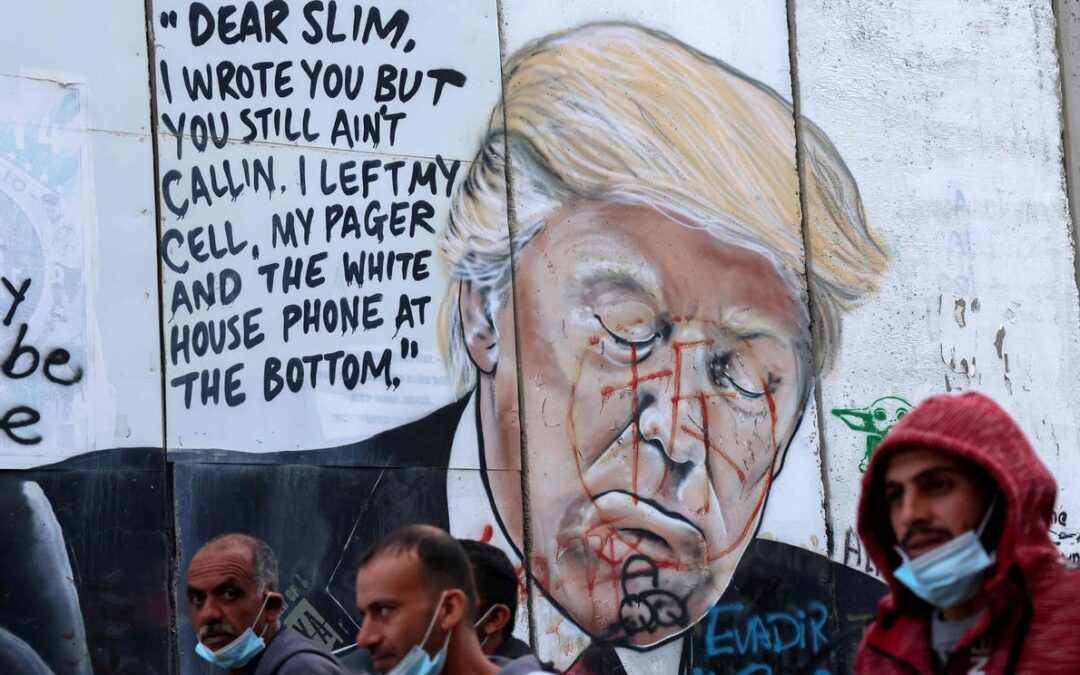 "DEAR SLIM,
I WROTE YOU BUT
YOU STILL AIN'T
CALLIN. I LEFT MY
CELL, MY PAGER
AND THE WHITE
HOUSE PHONE AT
THE BOTTOM."
y
be
e
EVADIR